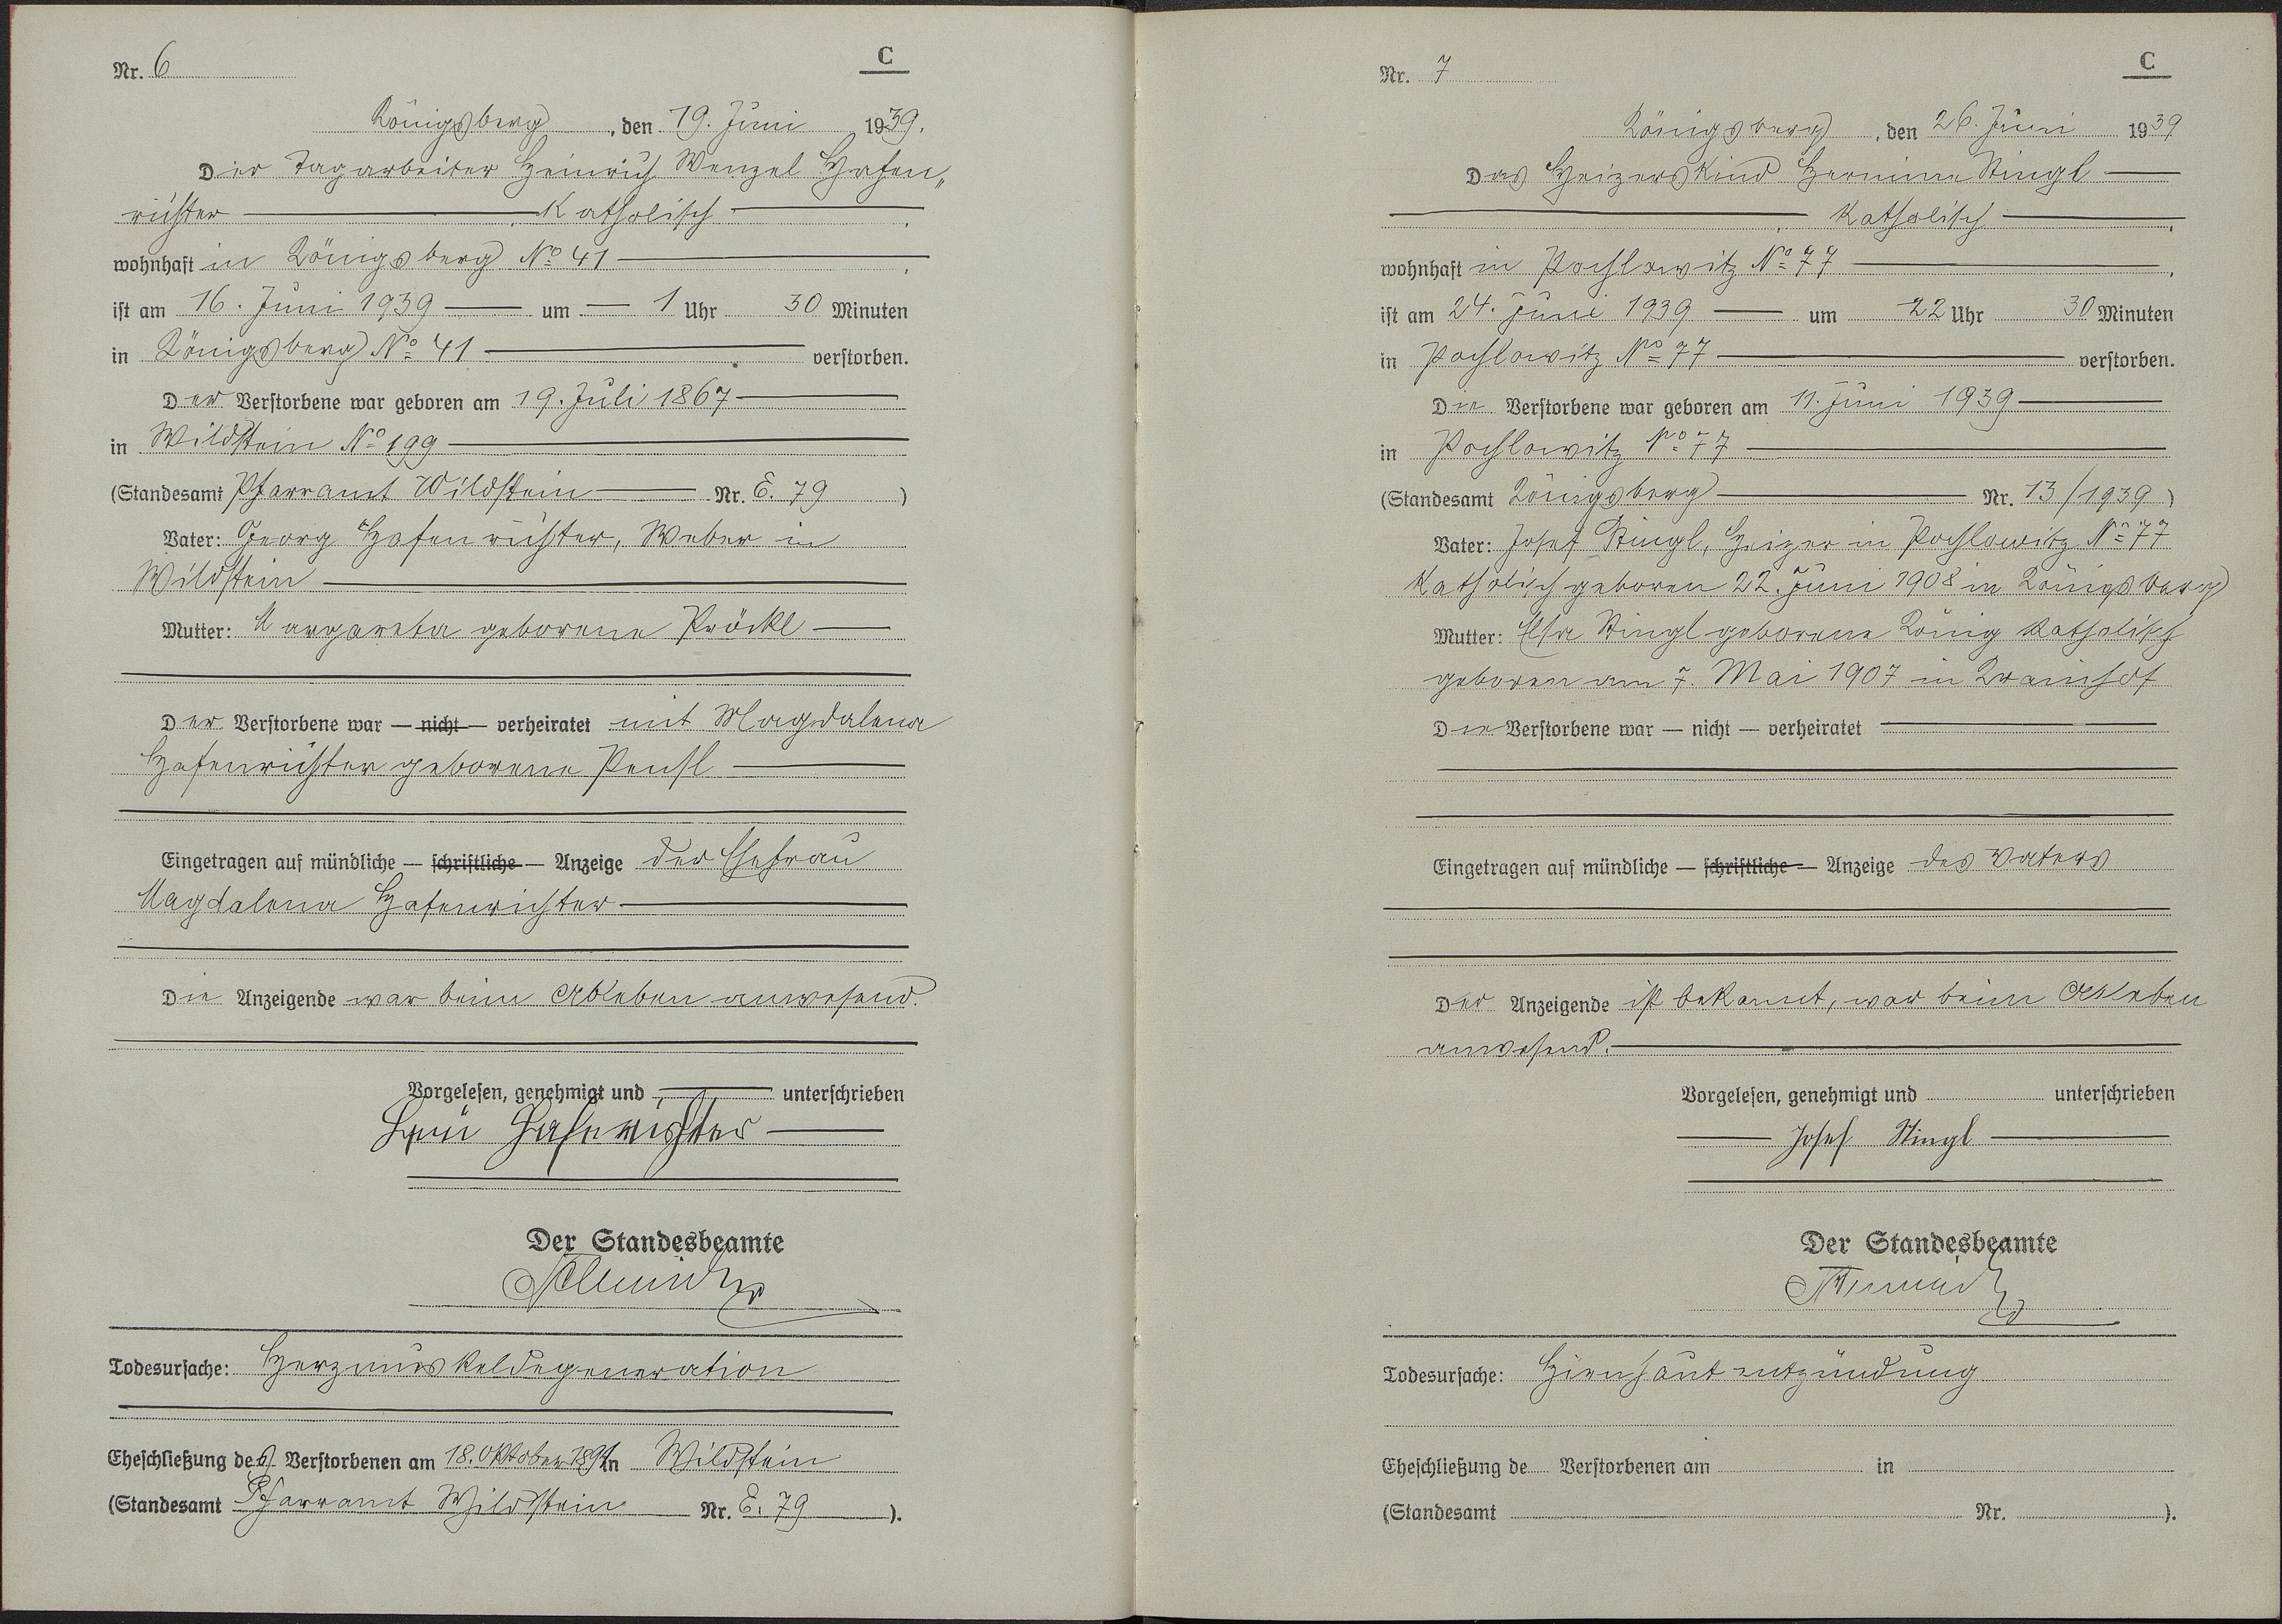 Nr. 6
C
Königsberg, den 19. Juni 1939.
Der Tagarbeiter Heinrich Wenzel Hafen„
richter Katholisch,
wohnhaft in Königsberg No 41,
ist am 16. Juni 1939 um 1 Uhr 30 Minuten
in Königsberg No 41 verstorben.
Der Verstorbene war geboren am 19. Juli 1867
in Wildstein No 199
(Standesamt Pfarramt Wildstein Nr. E. 79)
Vater: Georg Hafenrichter, Weber in
Wildstein
Mutter: Margareta geborene Pröckl
Der Verstorbene war — nicht — verheiratet mit Magdalena
Hafenrichter geborene
Eingetragen auf mündliche — schriftliche — Anzeige der Ehefrau
Magdalena Hafenrichter
Die Anzeigende war beim Ableben anwesend.
Vorgelesen, genehmigt und unterschrieben
Hafenrichter
Der Standesbeamte
Todesursache: Herzmuskeldegeneration
Eheschließung des Verstorbenen am 18. Oktober 1891 in Wildstein
(Standesamt Pfarramt Wildstein Nr. E. 79).
Nr. 7
C
Königsberg, den 26. Juni 1939
Das Heizerskind Hermine Stingl
Katholisch,
wohnhaft in Pochlowitz No 77,
ist am 24. Juni 1939 um 22 Uhr 30 Minuten
in Pochlowitz No 77 verstorben.
Die Verstorbene war geboren am 11. Juni 1939
in Pochlowitz No 77
(Standesamt Königsberg Nr. 13/1939)
Vater: Josef Stingl, Heizer in Pochlowitz No 77
Katholisch geboren 22. Juni 1908 in Königsberg
Mutter: Elsa Stingl geborene König Katholisch
geboren am 7. Mai 1907 in Krainhof
Die Verstorbene war — nicht — verheiratet
Eingetragen auf mündliche — schriftliche — Anzeige des Vaters
Der Anzeigende ist bekannt, war beim Ableben
anwesend.
Vorgelesen, genehmigt und unterschrieben
Josef Stingl
Der Standesbeamte
Todesursache: Hirnhautentzündung
Eheschließung de Verstorbenen am in
(Standesamt Nr. ).